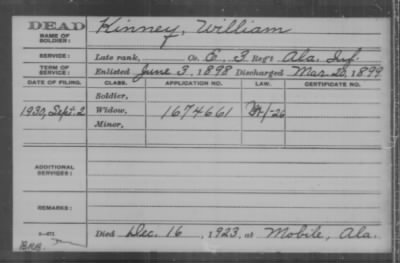 DEAD
NAME OF SOLDIER: Kinney, William
SERVICE: Late rank, Co. E, 3 Reg't Ala. Inf.
TERM OF SERVICE: Enlisted June 3, 1898 Discharged Mar. 20, 1899
DATE OF FILING. CLASS. APPLICATION NO. LAW. CERTIFICATE NO.
Soldier,
1930, Sept. 2 Widow, 1674661
Minor,
ADDITIONAL SERVICES:
REMARKS:
Died Dec. 16, 1923, at Mobile, Ala.